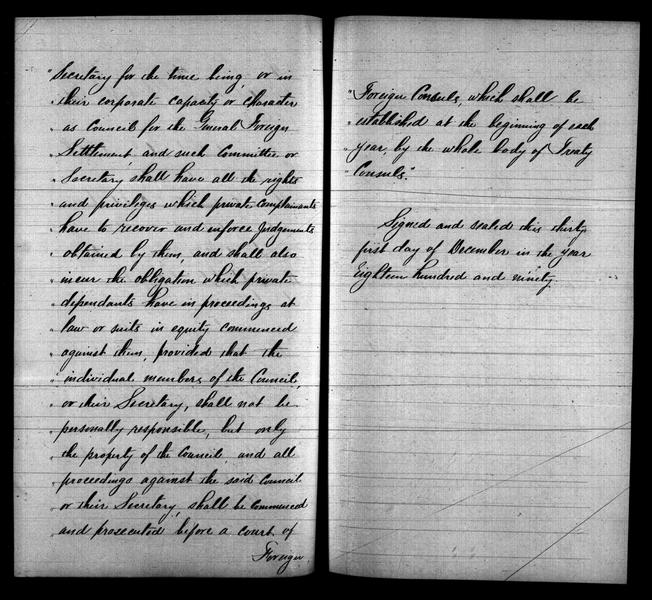 "Secretary for the time being, or in
" their corporate capacity or character
" as Council for the General Foreign
" Settlement, and such Committee or
" Secretary shall have all the rights
" and privileges which private Complainants
" have to recover and enforce Judgements
" obtained by them, and shall also
" incur the obligation which private
" defendants have in proceedings at
" law or suits in equity commenced
" against them, provided that the
" individual members of the Council
" or their Secretary, shall not be
" personally responsible, but only
" the property of the Council, and all
" proceedings against the said Council
" or their Secretary, shall be Commenced
" and prosecuted before a court of
Foreign
"Foreign Consuls, which shall be
" established at the beginning of each
" year, by the whole body of Treaty
" Consuls".
Signed and sealed this thirty
first day of December in the year
Eighteen hundred and ninety.